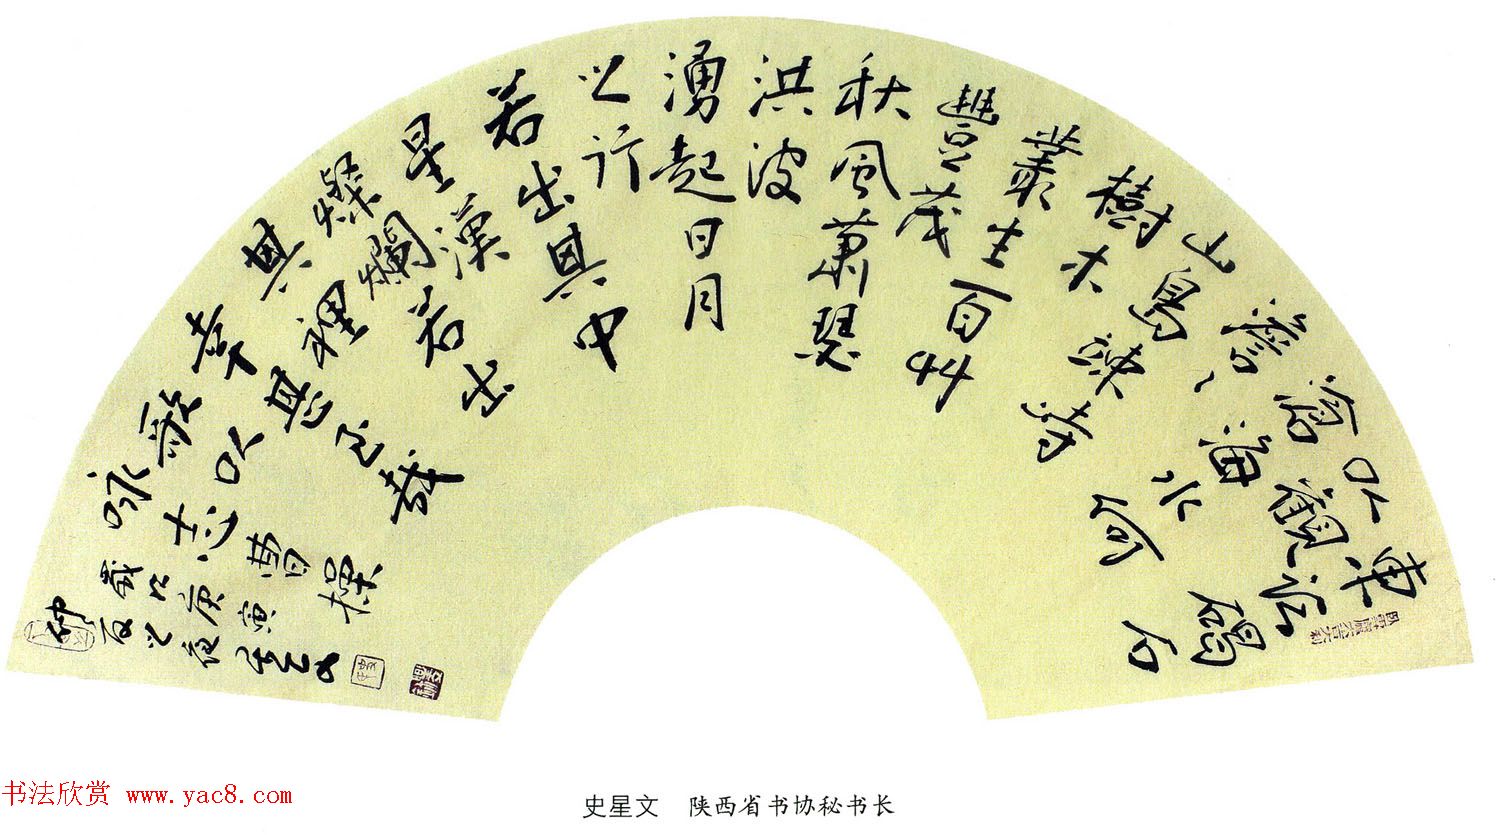 東臨碣石
以觀
滄海水何
澹〻
山島竦峙
樹木
叢生百艸
豐茂
秋風蕭瑟
洪波
湧起日月
之行
若出其中
星漢
燦爛若出
其裡
幸甚至哉
歌以
咏志曹操
歲次庚寅
仲夏之夜星文
书法欣赏 www.yac8.com
史星文 陕西省书协秘书长